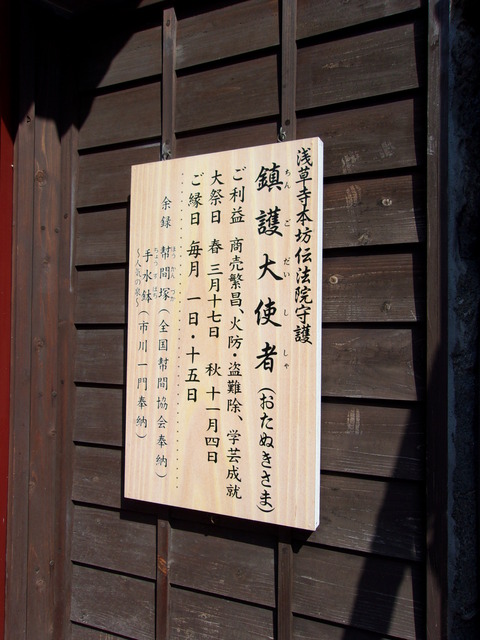 浅草寺本坊伝法院守護
鎮護大使者(おたぬきさま)
ちんごだいししゃ
ご利益 商売繁昌、火防・盗難除、学芸成就
大祭日 春 三月十七日 秋 十一月四日
ご縁日 毎月 一日・十五日
余録 幇間塚(全国幇間協会奉納)
ほうかんつか
手水鉢(市川一門奉納)
ちょうずばち
〜人気の泉〜